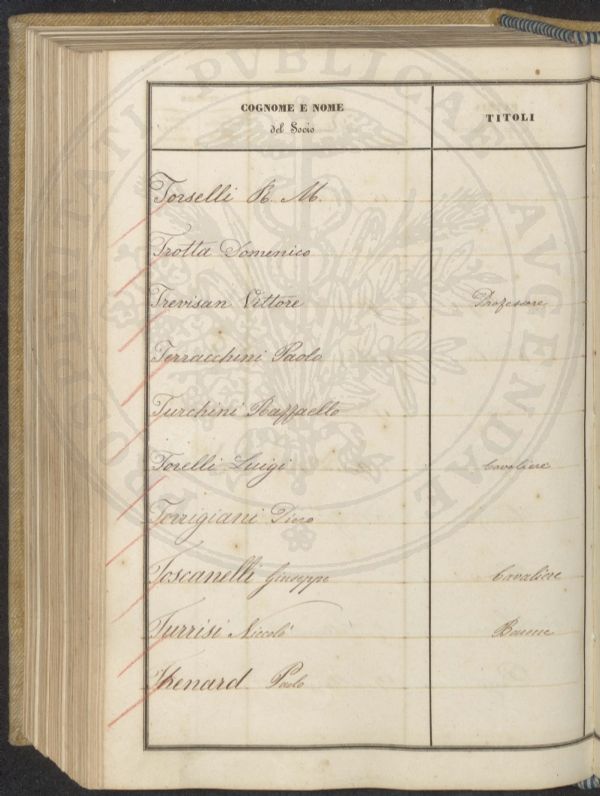 COGNOME E NOME
del Socio
TITOLI
Torselli R. M.
Trotta Domenico
Trevisan Vittore Professore
Terracchini Paolo
Turchini Raffaello
Torelli Luigi Cavaliere
Torrigiani Piero
Toscanelli Giuseppe Cavaliere
Turrisi Niccolò Barone
Thenard Paolo
PROSPERITATI PUBLICAE AUGENDAE